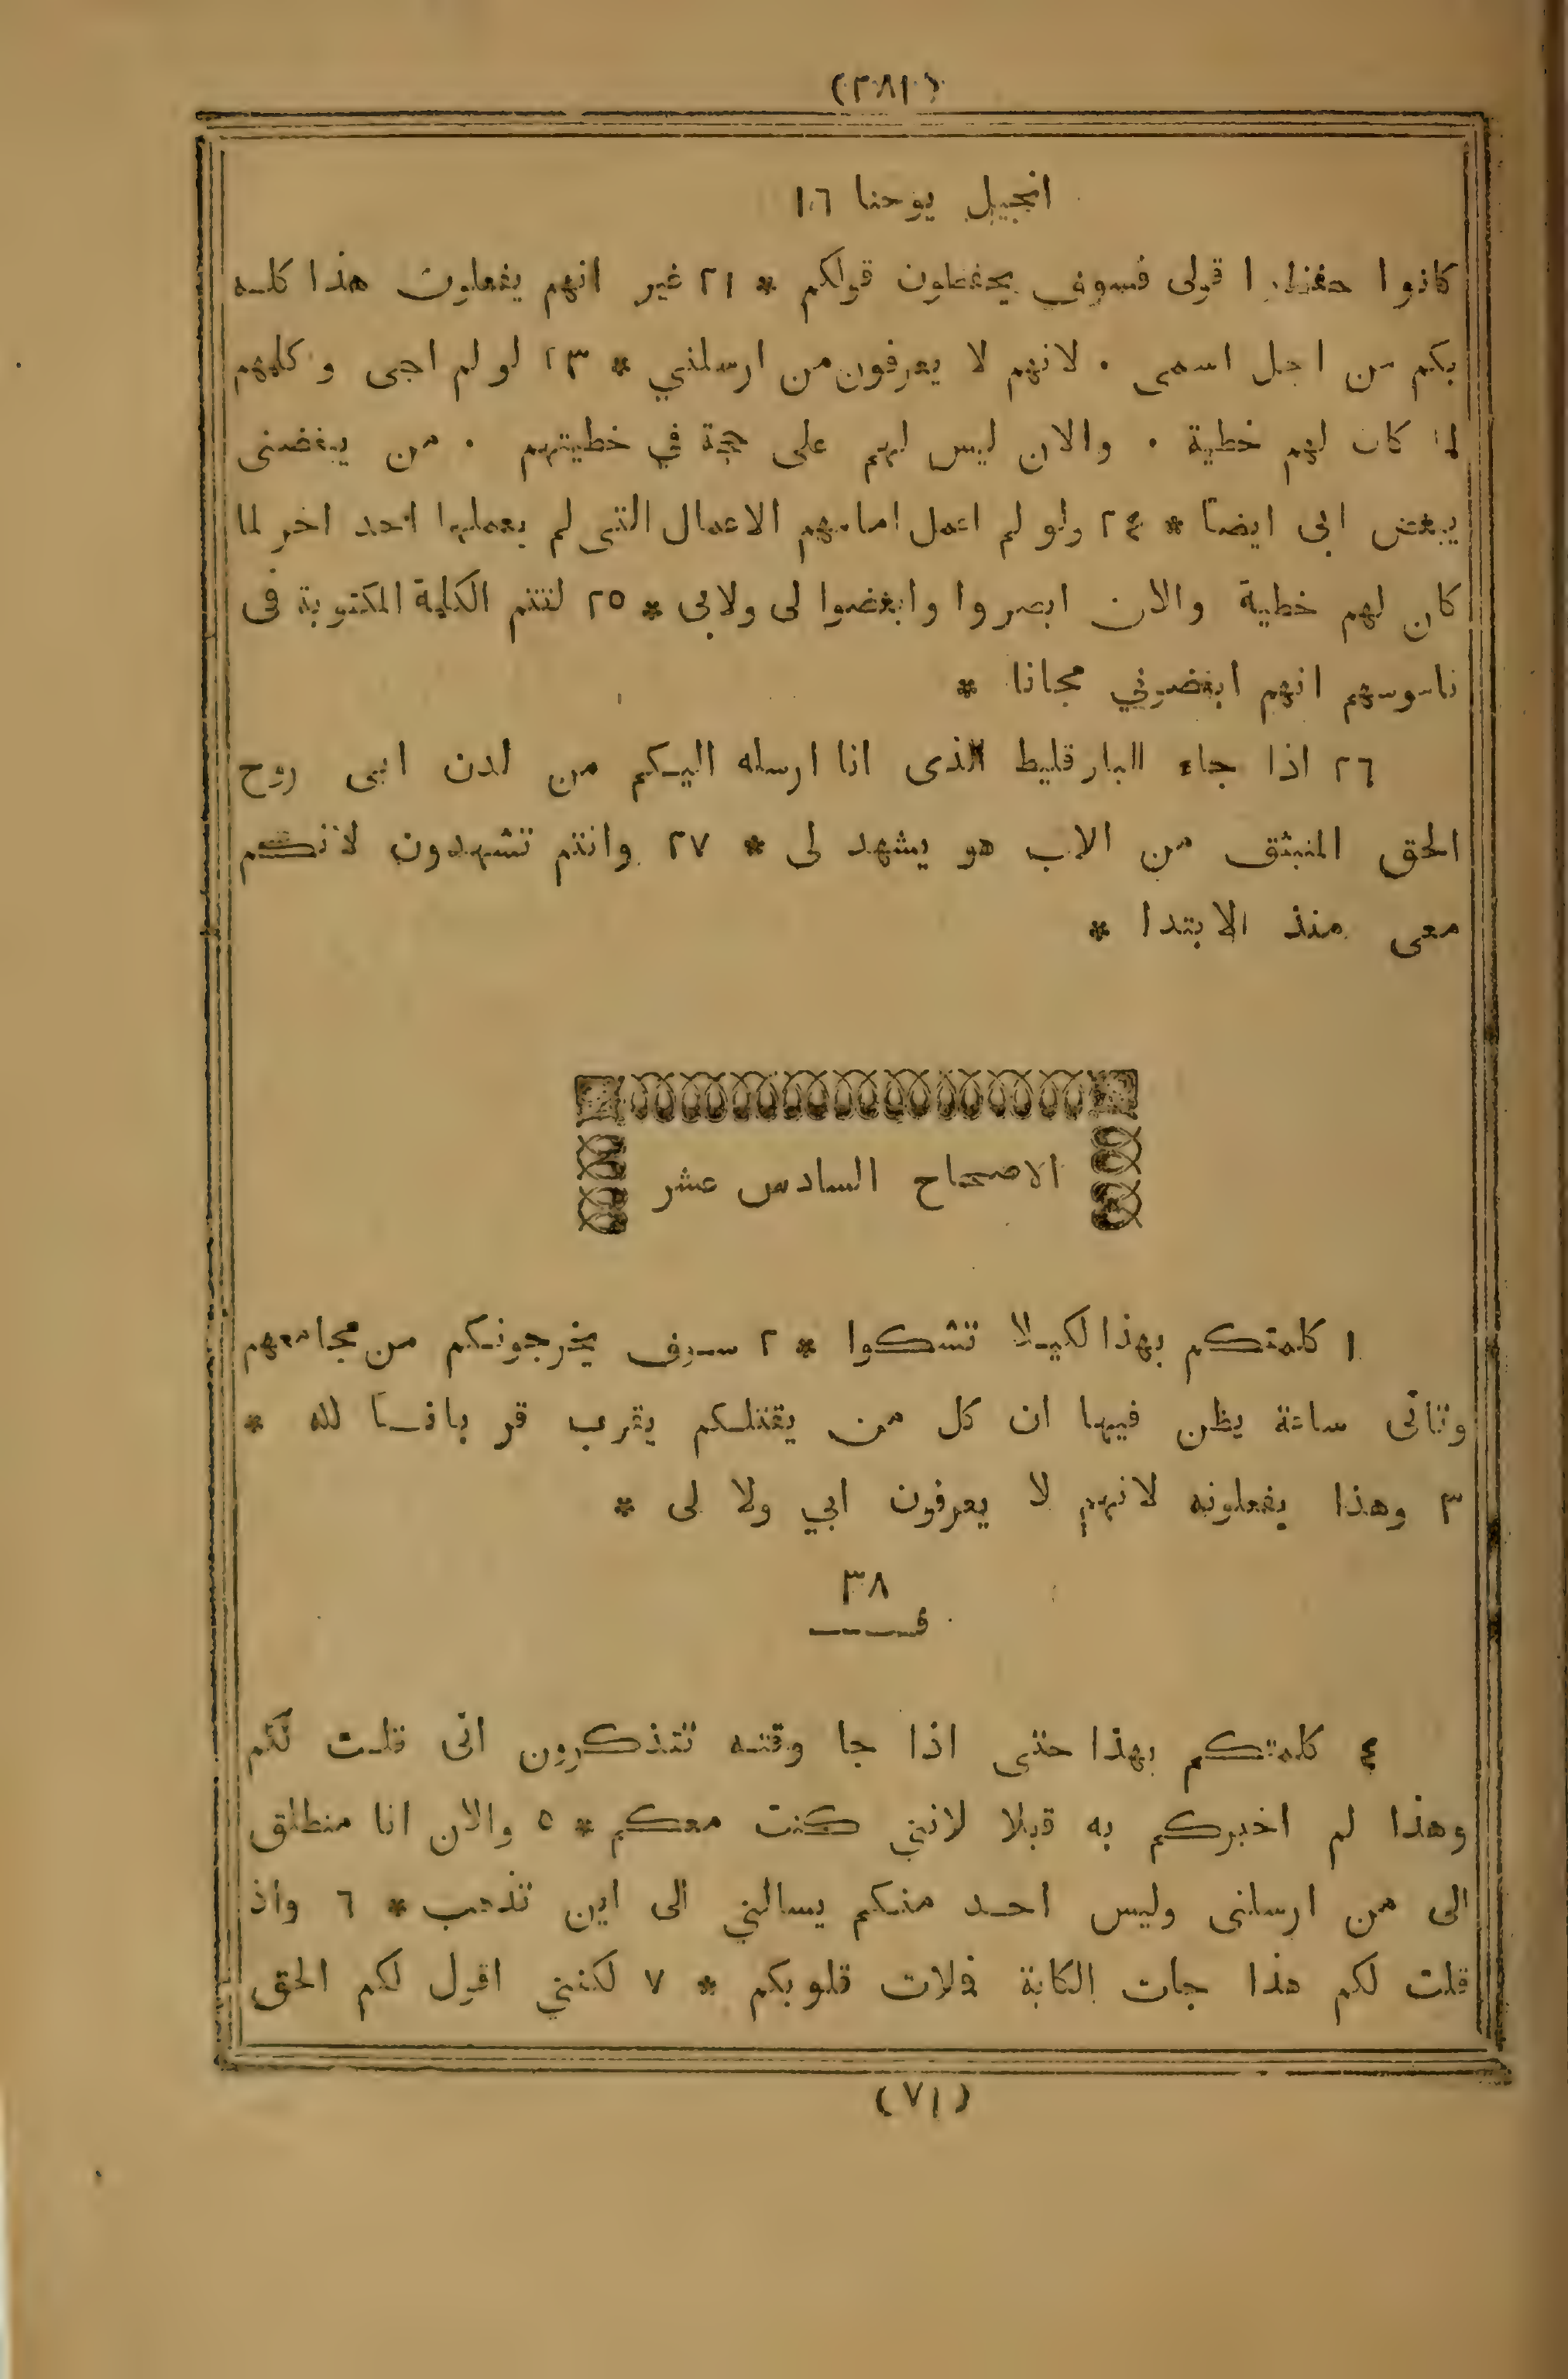 (٢٨١)
انجيل يوحنا ١٦
كانوا حفظوا قولى فسوف يحفظون قولكم * ٢١ غير انهم يفعلون هذا كله
بكم من اجل اسمى . لانهم لا يعرفون من ارسلني * ٢٣ لو لم اجى وكلمهم
لما كان لهم خطية . والان ليس لهم على حجة في خطيتهم . من يبغضنى
يبغض ابى ايضاً * ٢٤ ولو لم اعمل امامهم الاعمال التى لم يعملها احد اخر لما
كان لهم خطية والان ابصروا وابغضوا لى ولابى * ٢٥ لتتم الكلمة المكتوبة فى
ناموسهم انهم ابغضوني مجانا *
٢٦ اذا جاء البارقليط الذى انا ارسله اليكم من لدن ابى روح
الحق المنبثق من الاب هو يشهد لى * ٢٧ وانتم تشهدون لانكم
معى منذ الابتدا *
الاصحاح السادس عشر
١ كلمتكم بهذا لكيلا تشكوا * ٢ سوف يخرجونكم من مجامعهم
وتاتى ساعة يظن فيها ان كل من يقتلكم يقرب قرباناً لله *
٣ وهذا يفعلونه لانهم لا يعرفون ابي ولا لى *
٣٨
فـ
٤ كلمتكم بهذا حتى اذا جا وقته تتذكرون انى قلت لكم
وهذا لم اخبركم به قبلا لانني كنت معكم * ٥ والان انا منطلق
الى من ارسلنى وليس احد منكم يسالني الى اين تذهب * ٦ واذ
قلت لكم هذا جات الكابة فلات قلوبكم * ٧ لكنني اقول لكم الحق
(٧١)